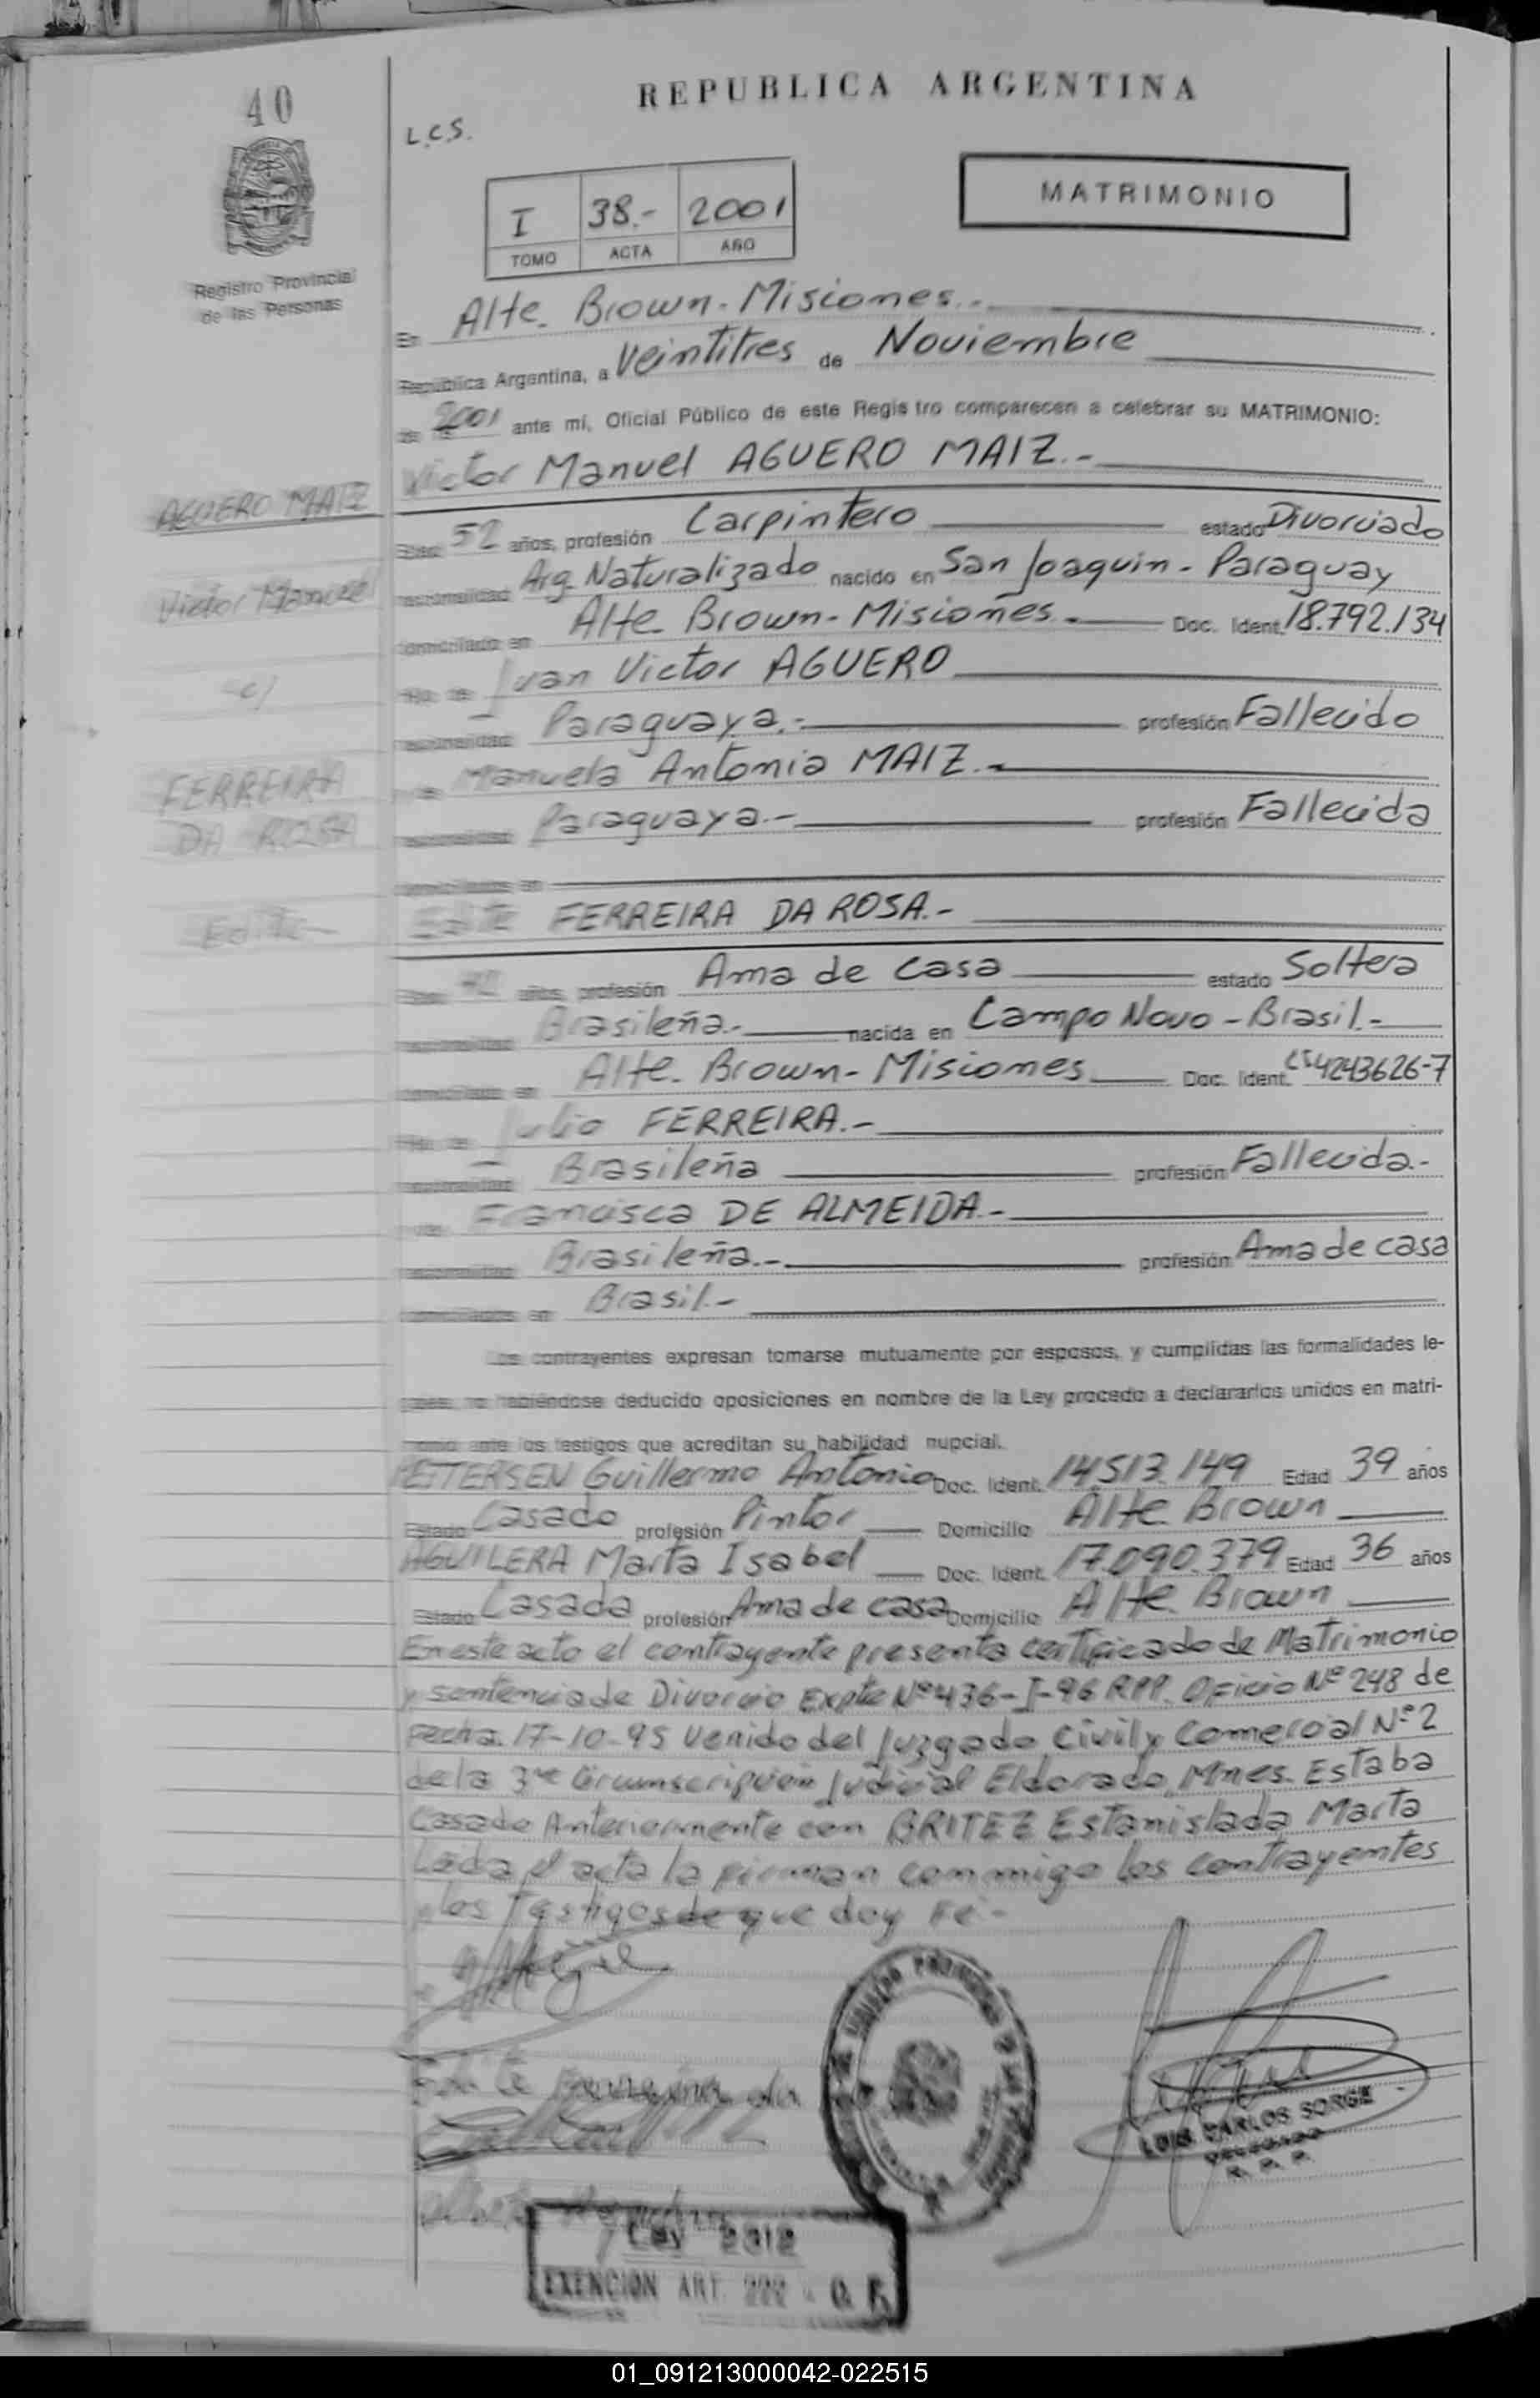 40
REPUBLICA ARGENTINA
L.C.S.
I 38.- 2001
TOMO ACTA AÑO
MATRIMONIO
Registro Provincial
de las Personas
En Alte. Brown - Misiones.-
República Argentina, a Veintitres de Noviembre
de 2001 ante mí, Oficial Público de este Registro comparecen a celebrar su MATRIMONIO:
Victor Manuel AGUERO MAIZ.-
AGUERO MAIZ
Edad 52 años, profesión Carpintero estado Divorciado
Victor Manuel
nacionalidad Arg. Naturalizado nacido en San Joaquin - Paraguay
domiciliado en Alte. Brown - Misiones.- Doc. Ident. 18.792.134
c/
Hijo de Juan Victor AGUERO
nacionalidad Paraguaya.- profesión Fallecido
FERREIRA
y de Manuela Antonia MAIZ.-
DA ROSA
nacionalidad Paraguaya.- profesión Fallecida
domiciliados en
Edite
Edite FERREIRA DA ROSA.-
Edad años, profesión Ama de casa estado Soltera
nacionalidad Brasileña.- nacida en Campo Novo - Brasil.-
domiciliada en Alte. Brown - Misiones Doc. Ident. 4243626-7
Hija de Julio FERREIRA.-
nacionalidad Brasileña profesión Fallecida.-
y de Francisca DE ALMEIDA.-
nacionalidad Brasileña.- profesión Ama de casa
domiciliados en Brasil.-
Los contrayentes expresan tomarse mutuamente por esposos, y cumplidas las formalidades le-
gales, no habiéndose deducido oposiciones en nombre de la Ley procedo a declararlos unidos en matri-
monio ante los testigos que acreditan su habilidad nupcial.
PETTERSEN Guillermo Antonio Doc. Ident. 14.513.149 Edad 39 años
Estado Casado profesión Pintor Domicilio Alte. Brown
AGUILERA Marta Isabel Doc. Ident. 17.090.379 Edad 36 años
Estado Casada profesión Ama de casa Domicilio Alte. Brown
En este acto el contrayente presenta certificado de Matrimonio
y sentencia de Divorcio Expte Nº 436-I-96 RPP. Oficio Nº 248 de
Fecha 17-10-95 Venido del Juzgado Civil y Comercial Nº 2
de la 3ra Circunscripción Judicial Eldorado, Mnes. Estaba
Casado Anteriormente con BRITEZ Estanislada Marta
Leida el acta la firman conmigo los contrayentes
y los Testigos de que doy Fé.-
LUIS CARLOS SORGE
R. P. P.
Ley 2312
EXENCION ART. 222 - C. F.
01_091213000042-022515